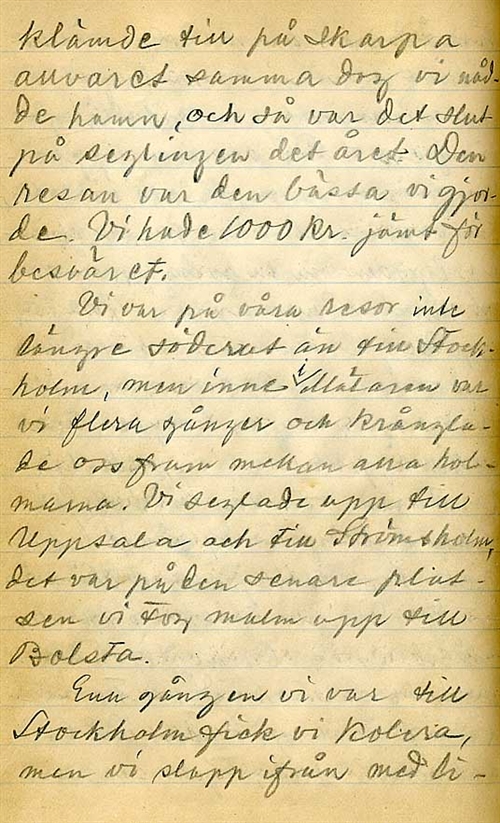 klämde till på skarpa
allvaret samma dag vi nåd-
de hamn, och så var det slut
på seglingen det året. Den
resan var den bässta vi gjor-
de. Vi hade 1000 kr. jämt för
besväret.
Vi var på våra resor inte
längre söderut än till Stock-
holm, men inne i Mälaren var
vi flera gånger och krångla-
de oss fram mellan alla hol-
marna. Vi seglade upp till
Uppsala och till Strömsholm,
det var på den senare plat-
sen vi tog malm upp till
Bolsta.
Enn gången vi var till
Stockholm fick vi kolera,
men vi slapp ifrån med li-